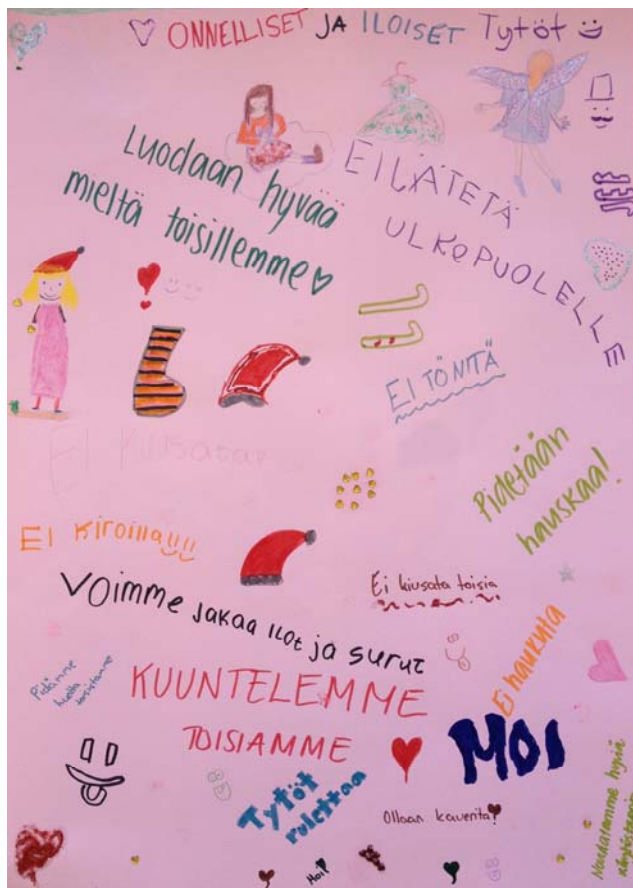 ONNELLISET JA ILOISET Tytöt
Luodaan hyvää
mieltä toisillemme
EI JÄTETÄ
ULKOPUOLELLE
JEE
EI TÖNITÄ
Ei kiusata
Pidetään
hauskaa!
Ei kiroilla!!!!
Ei kiusata toisia
Voimme jakaa ilot ja surut
Ei haukuta
Pidämme
huolta
toisistamme
KUUNTELEMME
TOISIAMME
MOI
Tytöt
rulettaa
Ollaan kavereita!
Noudatamme hyviä
käytöstapoja
Moi!